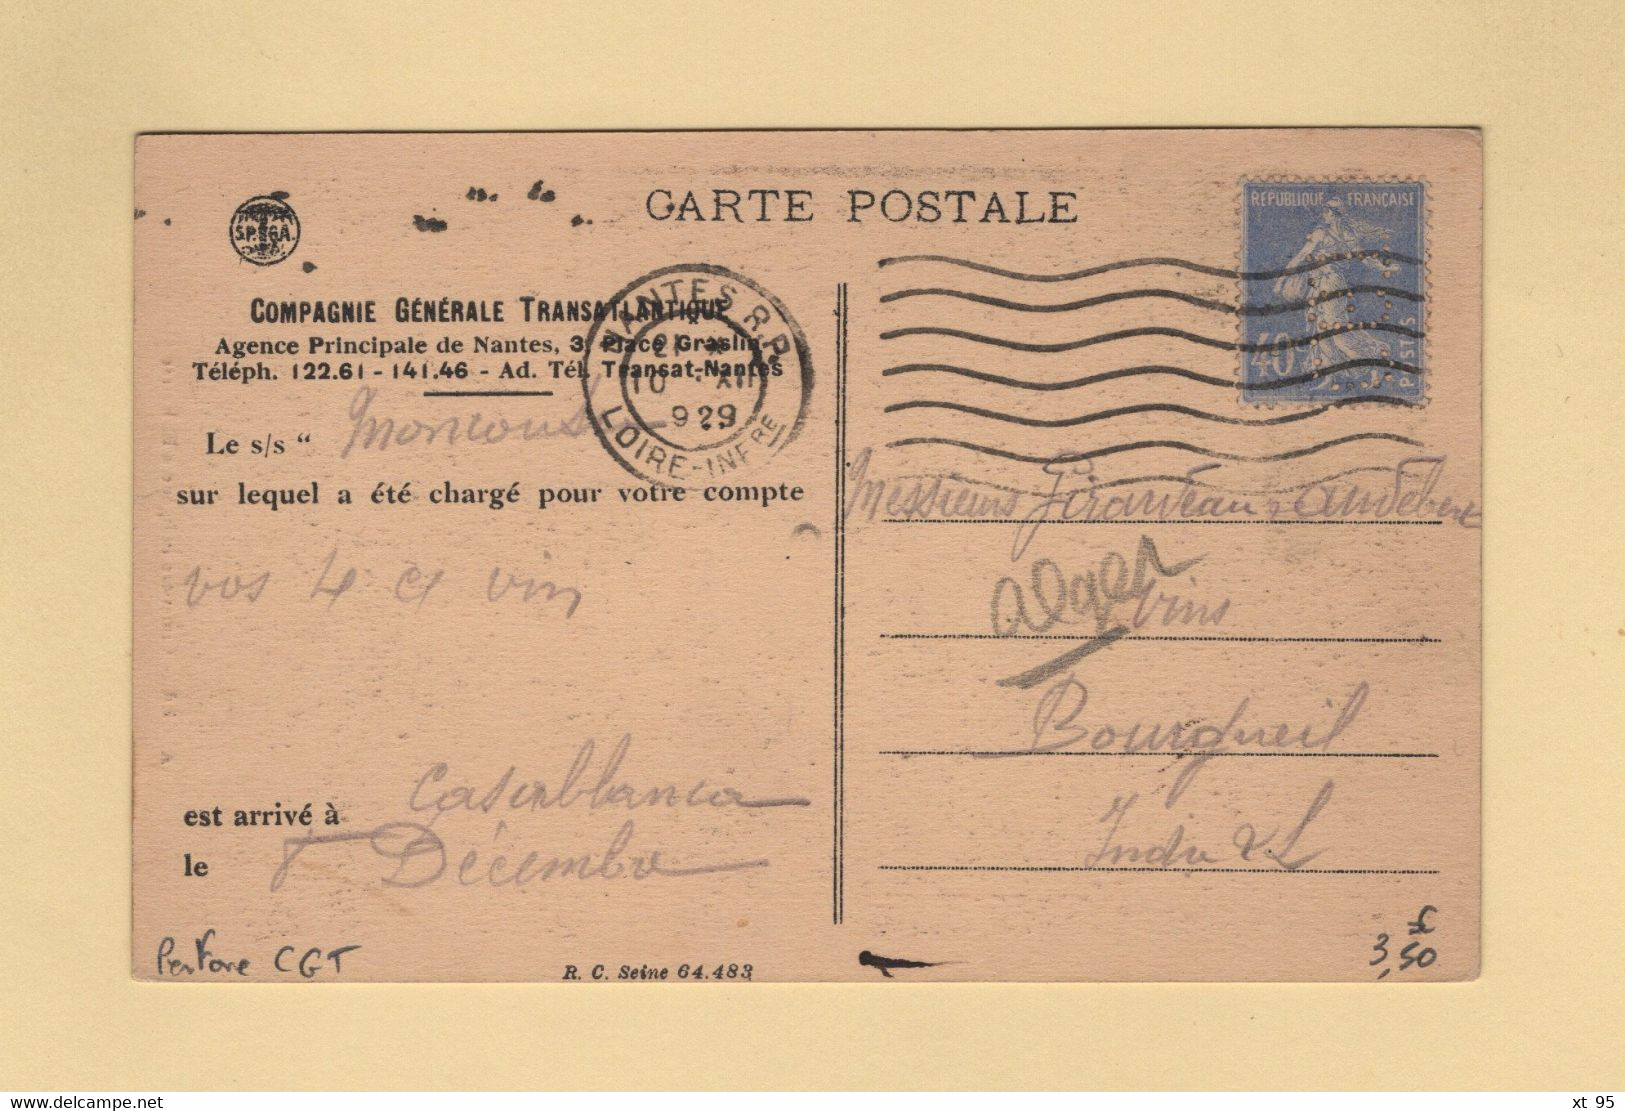 CARTE POSTALE
S.P.GA.
RÉPUBLIQUE FRANÇAISE
40c
POSTES
COMPAGNIE GÉNÉRALE TRANSATLANTIQUE
Agence Principale de Nantes, 3, Place Graslin,
Téléph. 122.61 - 141.46 - Ad. Tél. Transat-Nantes
NANTES R.P.
21 *
10 XII
929
LOIRE-INFRE
Le s/s "
sur lequel a été chargé pour votre compte
vos 4 vin
est arrivé à Casablanca
le 8 Décembre
Messieurs Giraudeau & Audebert
Alger
Vins
Bourgueil
Indre & L
Perfore CGT
R. C. Seine 64.483
£
3,50
xt 95